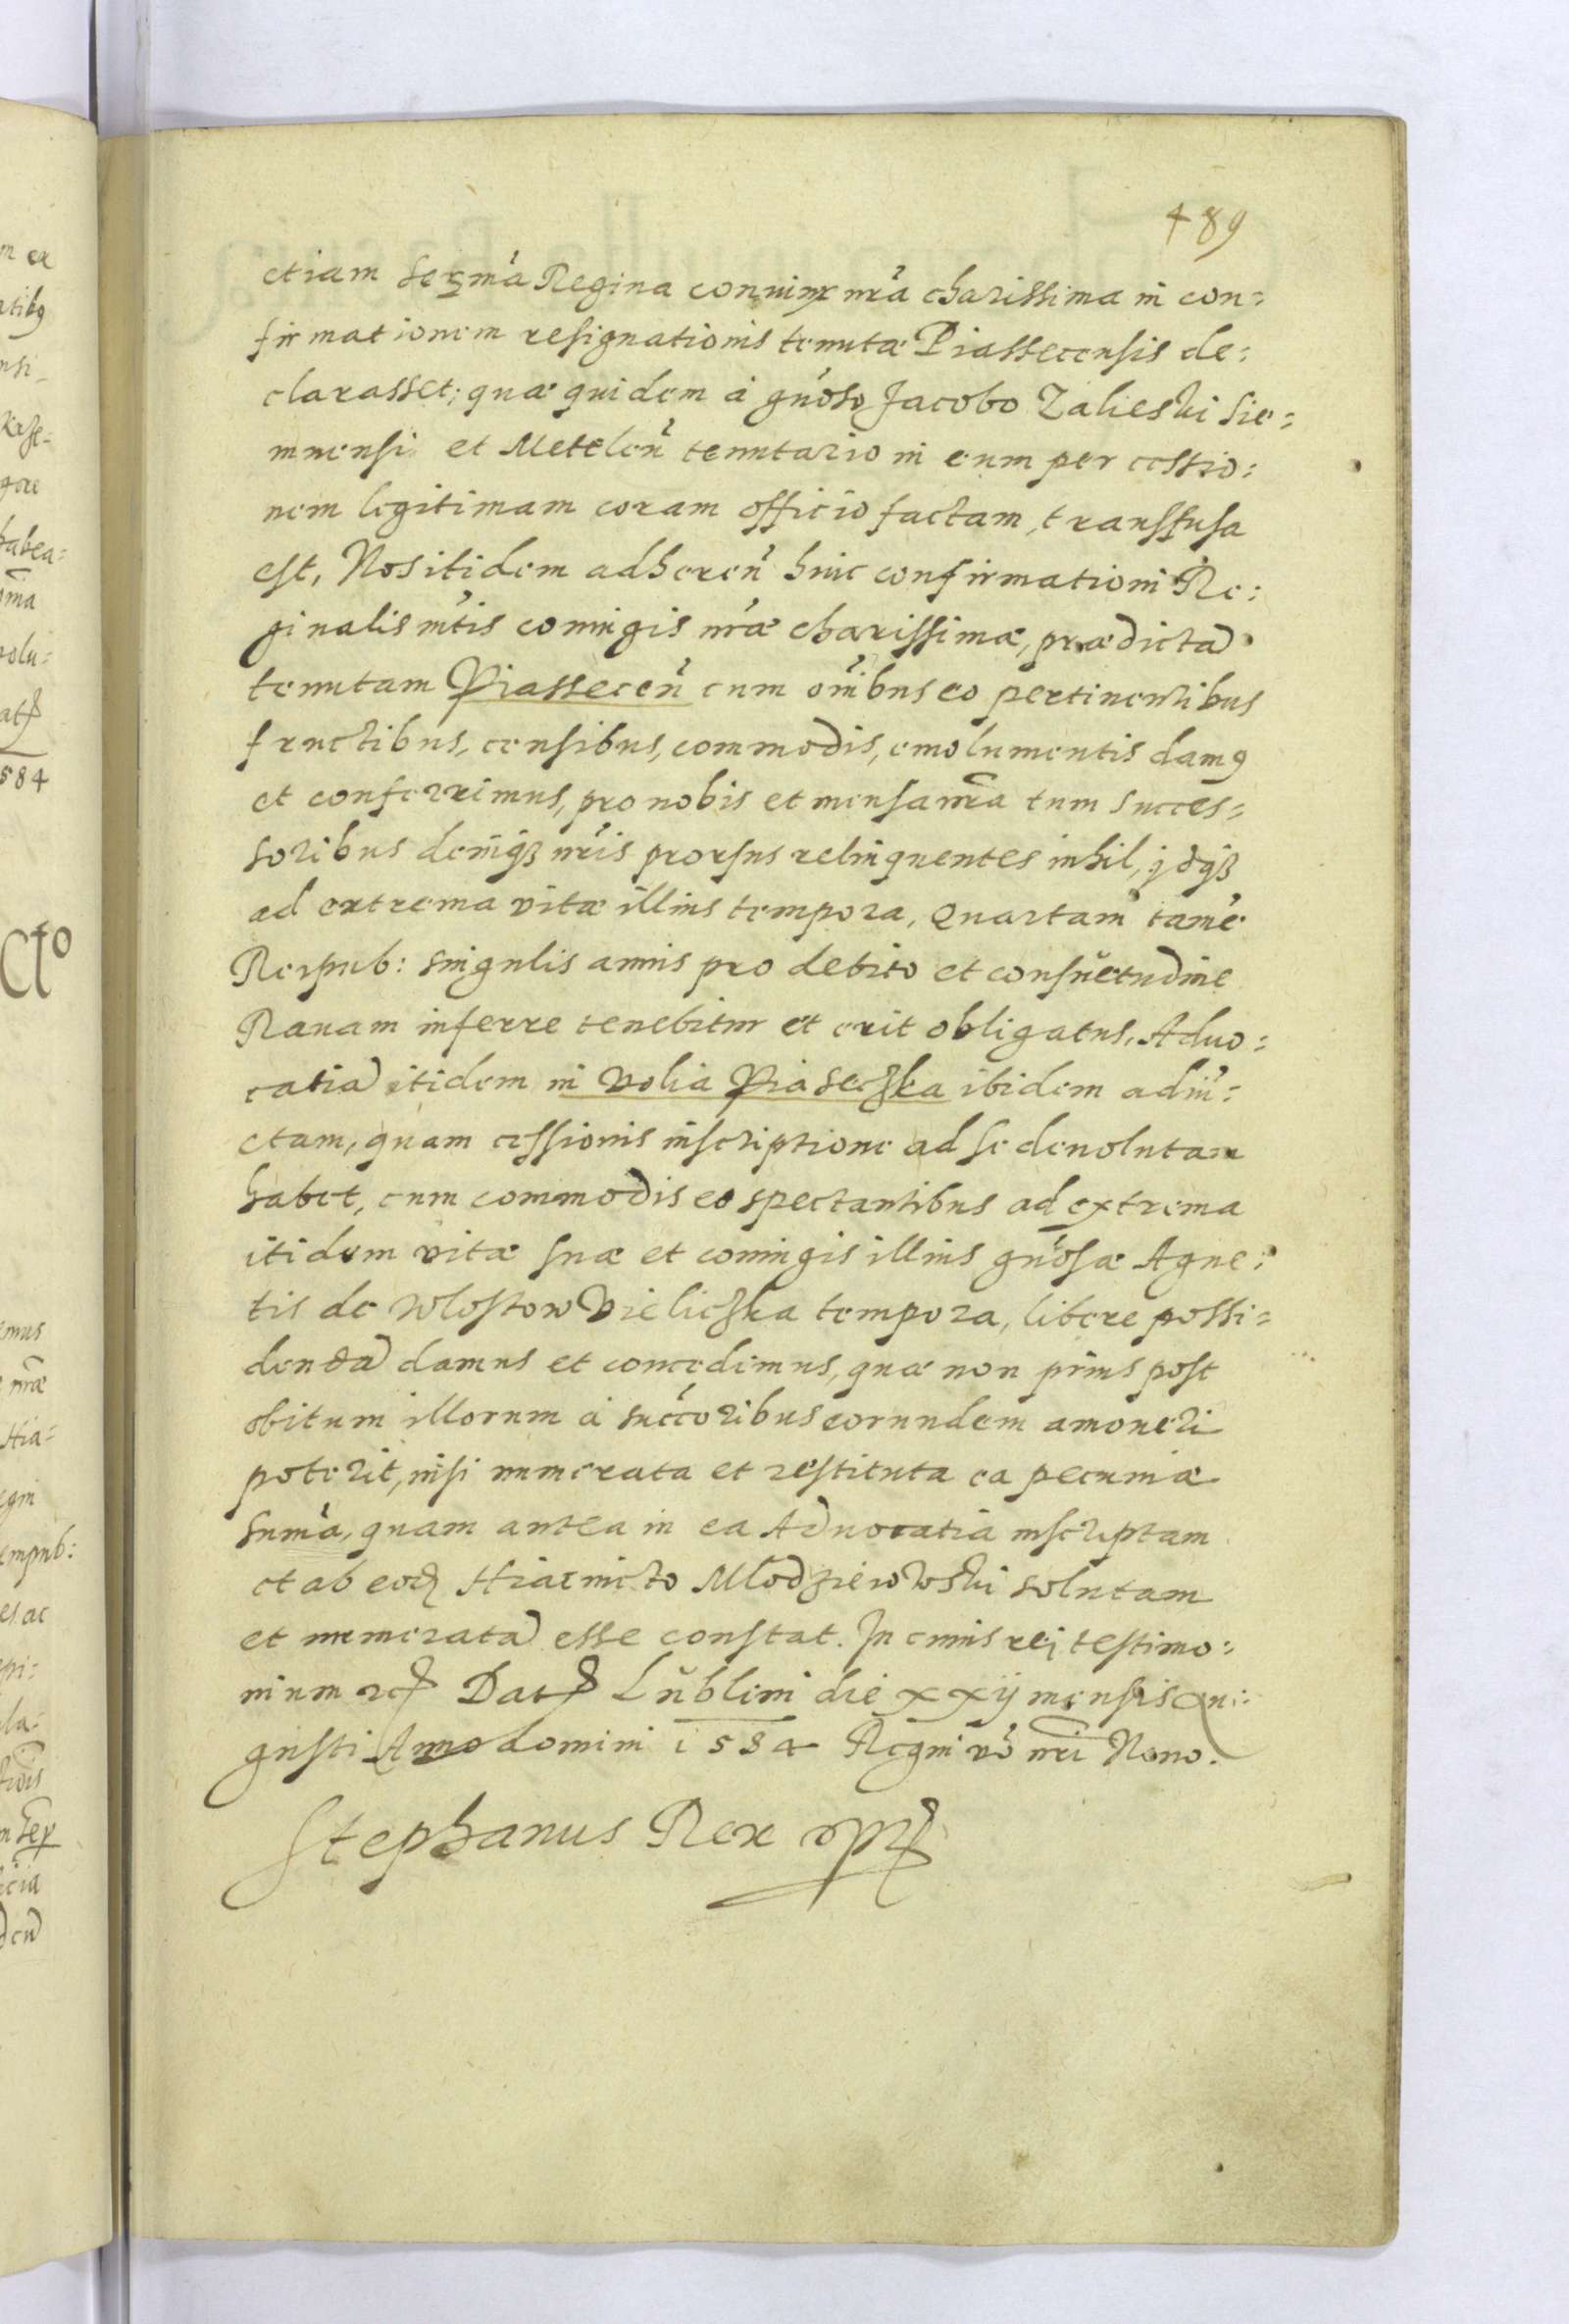 489
etiam Serma Regina coniunx nr̃a charissima in con:
firmationem resignationis tenutæ Piassecensis de:
clarasset; quæ quidem á gnõso Jacobo Zalieski Sie:
mnensi et Metelen̄ tenutario in eum per cessio:
nem legitimam coram officio factam, transfusa
est, Nos itidem adheren̄ huic confirmationi Re:
ginalis mtis coniugis nr̃æ charissimæ, prædictã
tenutam Piassecen̄ cum om̃ibus eo pertinentibus
fructibus, censibus, commodis, emolumentis damus
et conferrimus, pro nobis et mensa nr̃a tum succes=
soribus deniqꝫ nr̃is prorsus relinquentes nihil, idqꝫ
ad extrema vitæ illius tempora, Quartam tamẽ
Reipub: singulis annis pro debito et consuetudine
Ravam inferre tenebitur et erit obligatus, Aduo:
catiã itidem in Volia Piaseczka ibidem adiũ:
ctam, quam cessionis inscriptione ad se deuolutam
habet, cum commodis eo spectantibus ad extrema
itidem vitæ suæ et coniugis illius gnõsæ Agne:
tis de Wlostow Vieliczka tempora, libere possi=
dendã damus et concedimus, quæ non prius post
obitum illorum á succõribus eorundem amoueri
poterit, nisi numerata et restituta ea pecuniæ
sum̃a, quam antea in ea Aduocatia inscriptam
et ab eodꝫ Hiacincto Mlodziewowski solutam
et numeratã esse constat. In cuius rei testimo:
nium ꝛc Datꝭ Lŭblini die xxij mensis Au:
gusti Anno domini 1584 Regni võ nr̃i Nono.
Stephanus Rex sst